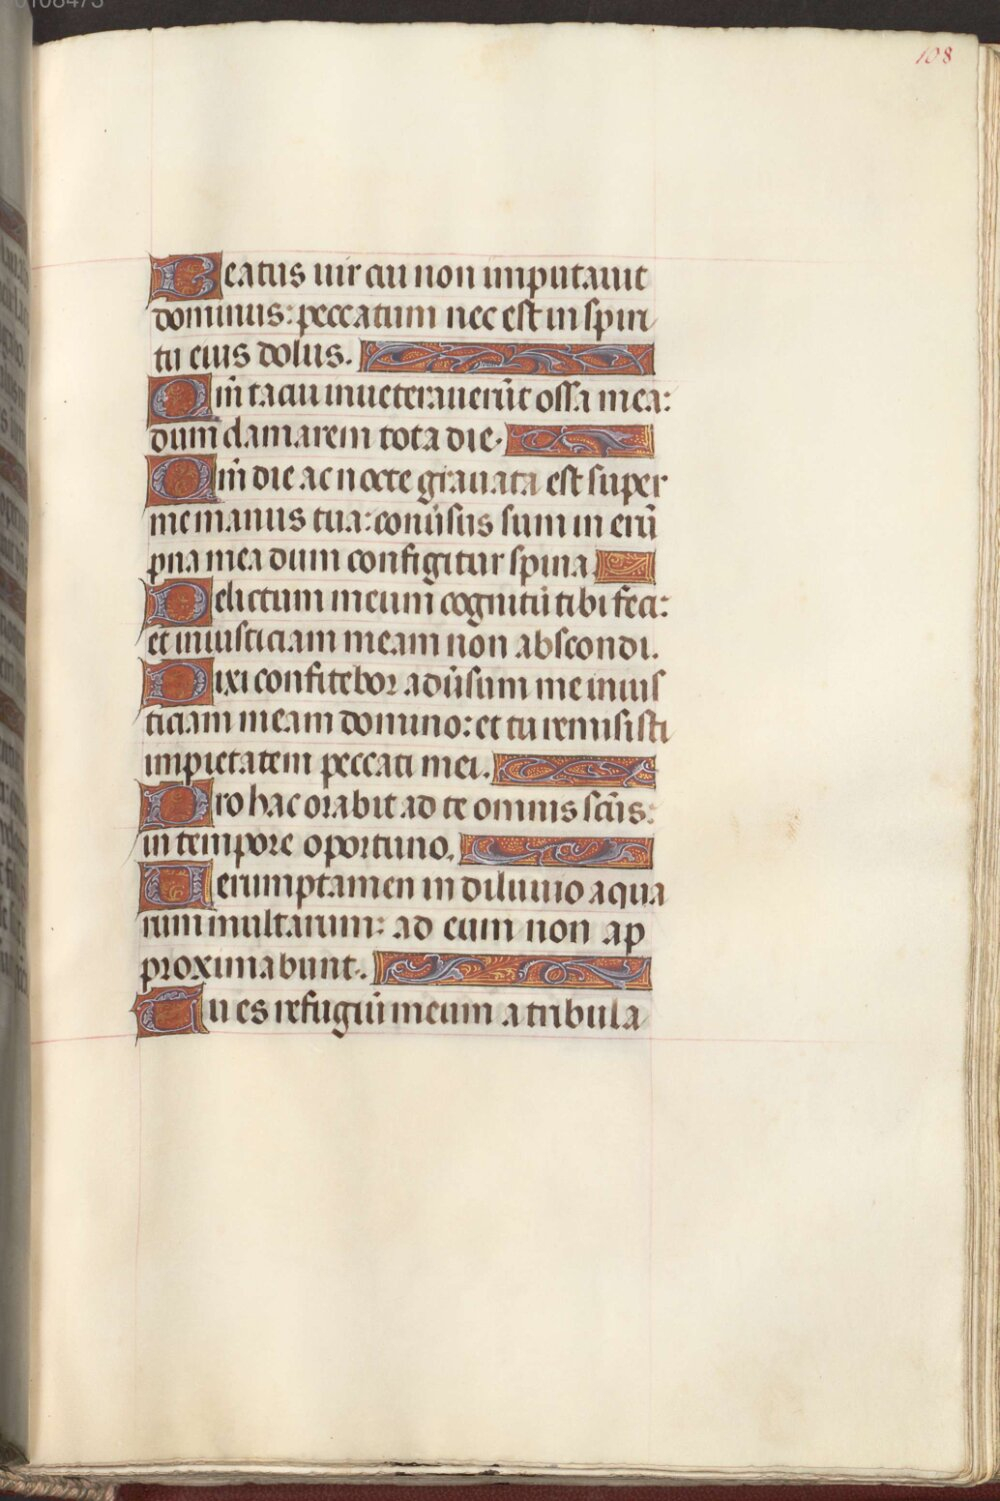 108
Beatus uir cui non imputauit
dominus: peccatum nec est in spiri
tu eius dolus.
Qm̄ tacui inueterauerūt ossa mea:
dum clamarem tota die.
Qm̄ die ac nocte grauata est super
me manus tua: conūsus sum in erū
pna mea dum configitur spina.
Delictum meum cognitū tibi feci:
et iniusticiam meam non abscondi.
Dixi confitebor adūsum me inius
ticiam meam domino: et tu remisisti
impietatem peccati mei.
Pro hac orabit ad te omnis sc̄us:
in tempore oportuno.
Uerumptamen in diluuio aqua
rum multarum: ad eum non ap
proximabunt.
Tu es refugiū meum a tribula